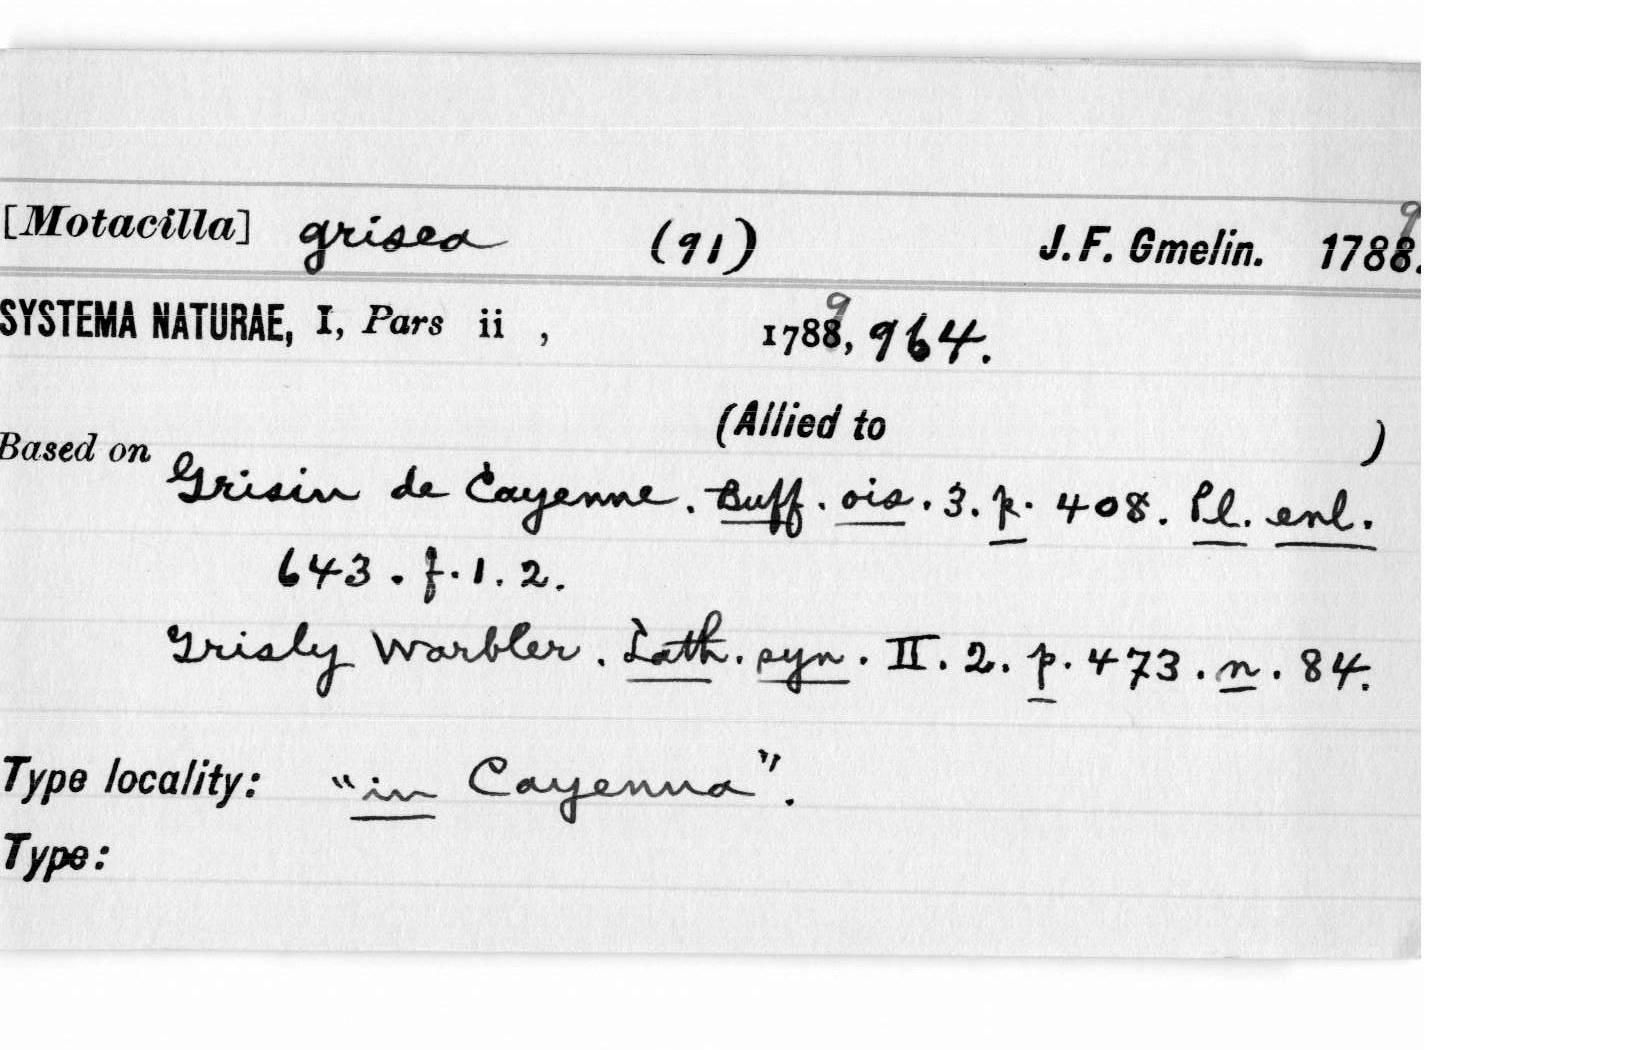 [Motacilla] grisea (91) J. F. Gmelin. 1788. 9
SYSTEMA NATURAE, I, Pars ii , 1788, 9 964.
(Allied to )
Based on Grisin de Cayenne. Buff. ois. 3. p. 408. Pl. enl.
643. f. 1. 2.
Grisly Warbler. Lath. syn. II. 2. p. 473. n. 84.
Type locality: "in Cayenna".
Type: